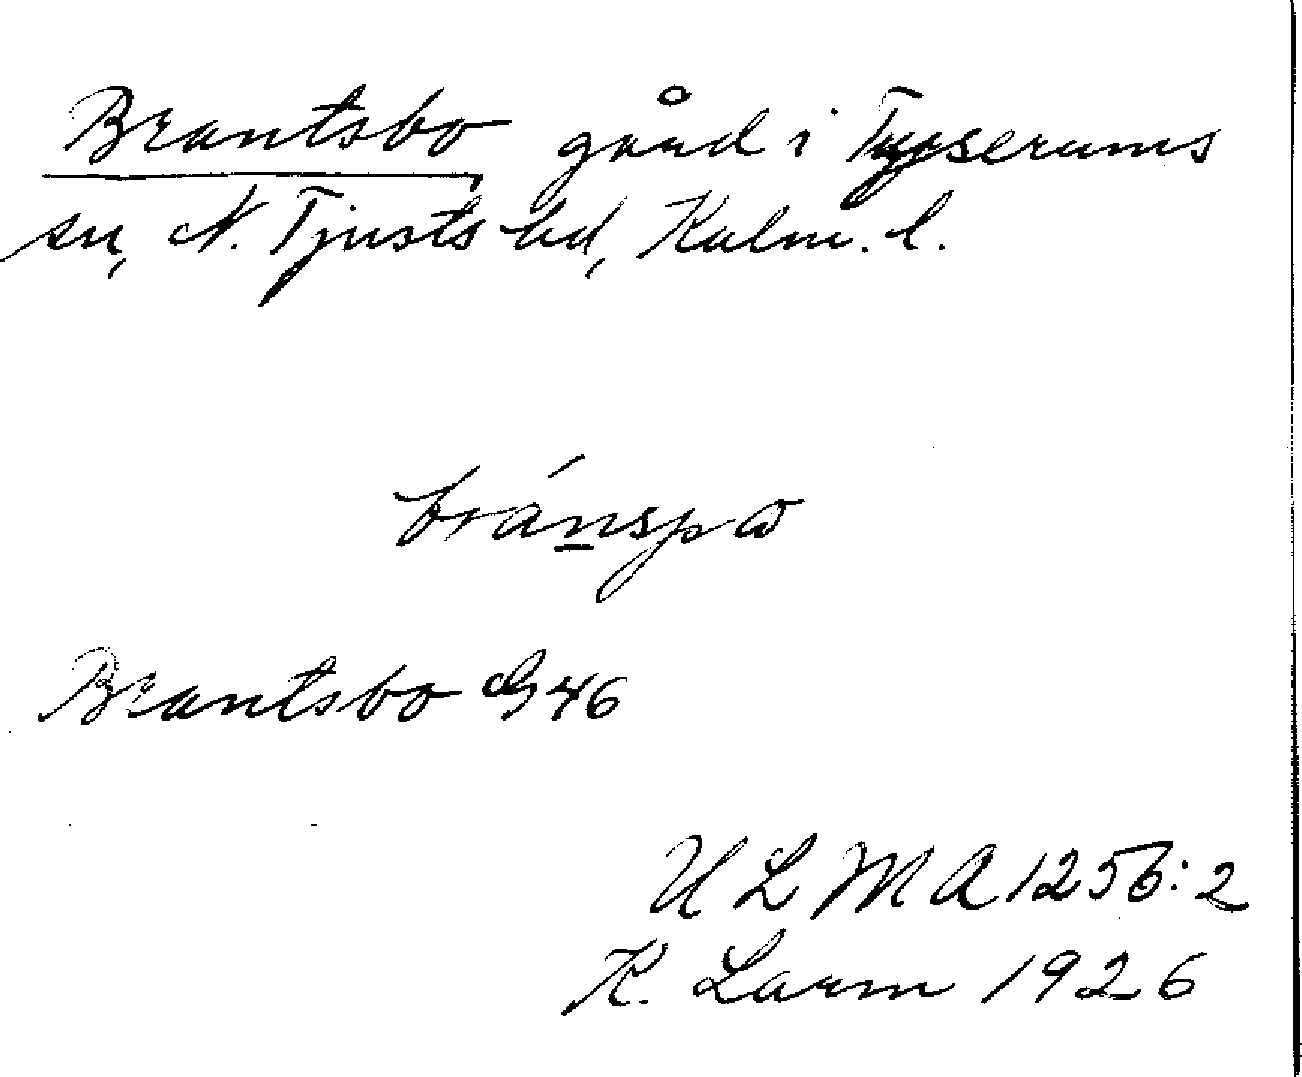 Brantsbo gård i Tryserums
sn, N. Tjusts hd, Kalm. l.
bránspω
Brantsbo G 46
ULMA 1256:2
K. Larm 1926